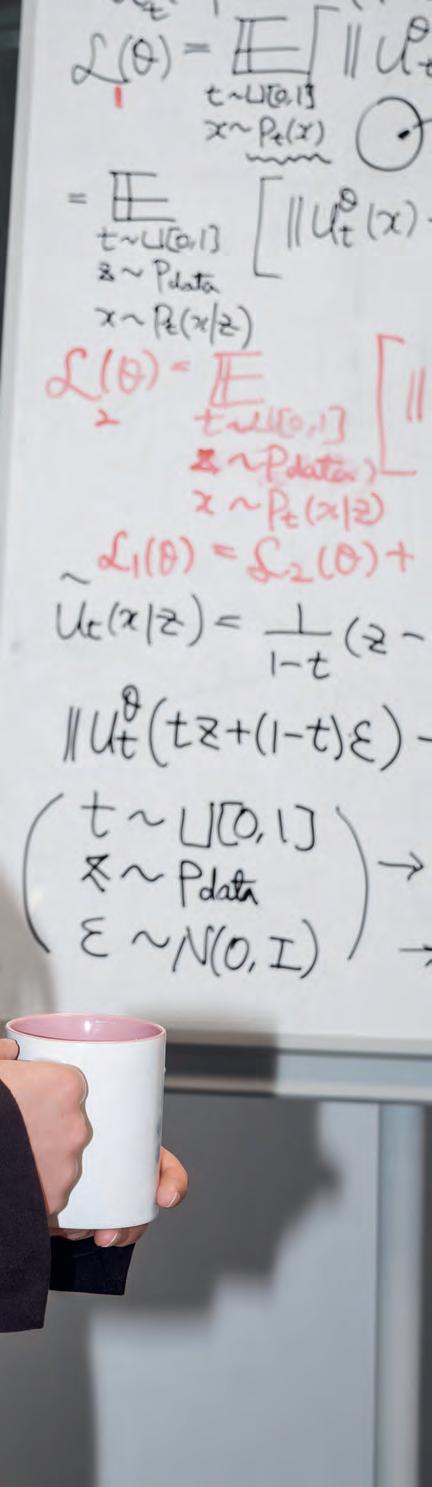 L₁(θ) = E [ ‖ U_t^θ
t~U[0,1]
x~P_t(x)
= E [ ‖U_t^θ(x) -
t~U[0,1]
z~P_data
x~P_t(x|z)
L₂(θ) = E [ ‖
t~U[0,1]
z~P_data
x~P_t(x|z)
L₁(θ) = L₂(θ) +
Ũ_t(x|z) = 1/(1-t) (z -
‖U_t^θ(tz+(1-t)ε) -
( t~U[0,1]
z~P_data ) →
ε~N(0,I) →